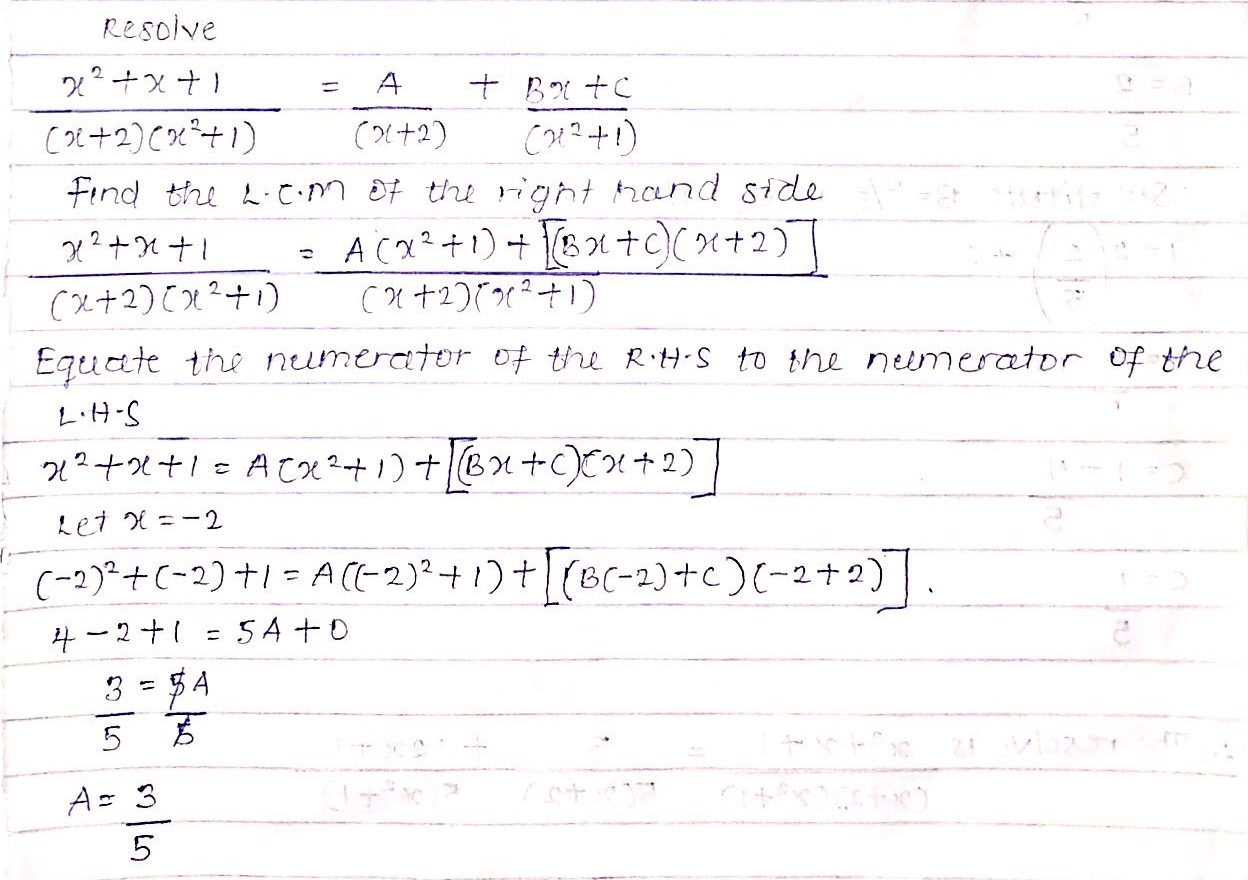 Resolve
x²+x+1 = A + Bx+C
(x+2)(x²+1) (x+2) (x²+1)
Find the L.C.M of the right hand side
x²+x+1 = A(x²+1)+[(Bx+C)(x+2)]
(x+2)(x²+1) (x+2)(x²+1)
Equate the numerator of the R.H.S to the numerator of the
L.H.S
x²+x+1 = A(x²+1)+[(Bx+C)(x+2)]
Let x=-2
(-2)²+(-2)+1 = A((-2)²+1)+[(B(-2)+C)(-2+2)].
4-2+1 = 5A+0
3 = 5A
5 5
A = 3
5